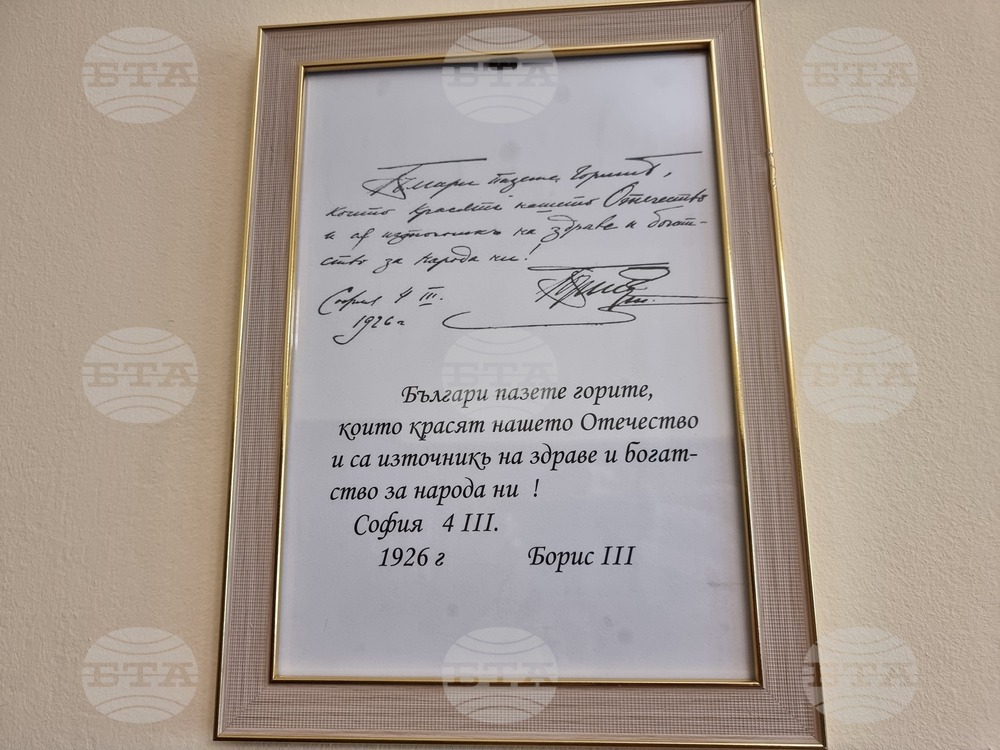 Българи пазете горитѣ,
които красятъ нашето Отечество
и са източникъ на здраве и богат-
ство за народа ни!
София 4 III.
1926 г
Българи пазете горите,
които красят нашето Отечество
и са източникь на здраве и богат-
ство за народа ни !
София 4 III.
1926 г Борис III
БТА
БТА
БТА
БТА
БТА
БТА
БТА
БТА
БТА